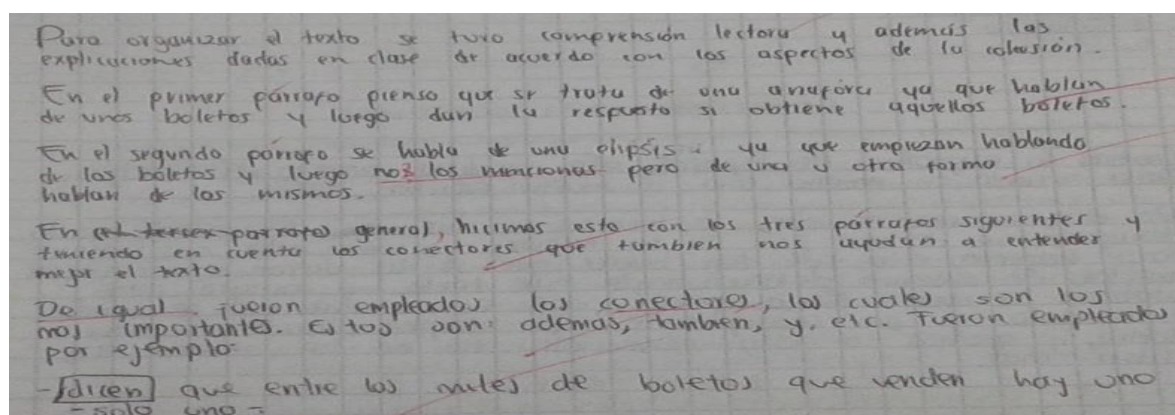 Para organizar el texto se tuvo comprensión lectora y además las
explicaciones dadas en clase de acuerdo con los aspectos de la cohesión.
En el primer párrafo pienso que se trata de una anáfora ya que hablan
de unos boletos y luego dan la respuesta si obtiene aquellos boletos.
En el segundo párrafo se habla de una elipsis. ya que empiezan hablando
de los boletos y luego no los mencionas pero de una u otra forma
hablan de los mismos.
En el tercer parrafo general, hicimos esto con los tres párrafos siguientes y
teniendo en cuenta los conectores que tambien nos ayudan a entender
mejor el texto.
De igual fueron empleados los conectores, los cuales son los
mas importantes. Estos son: ademas, tambien, y, etc. Fueron empleados
por ejemplo:
- dicen que entre los miles de boletos que venden hay uno
- solo uno -